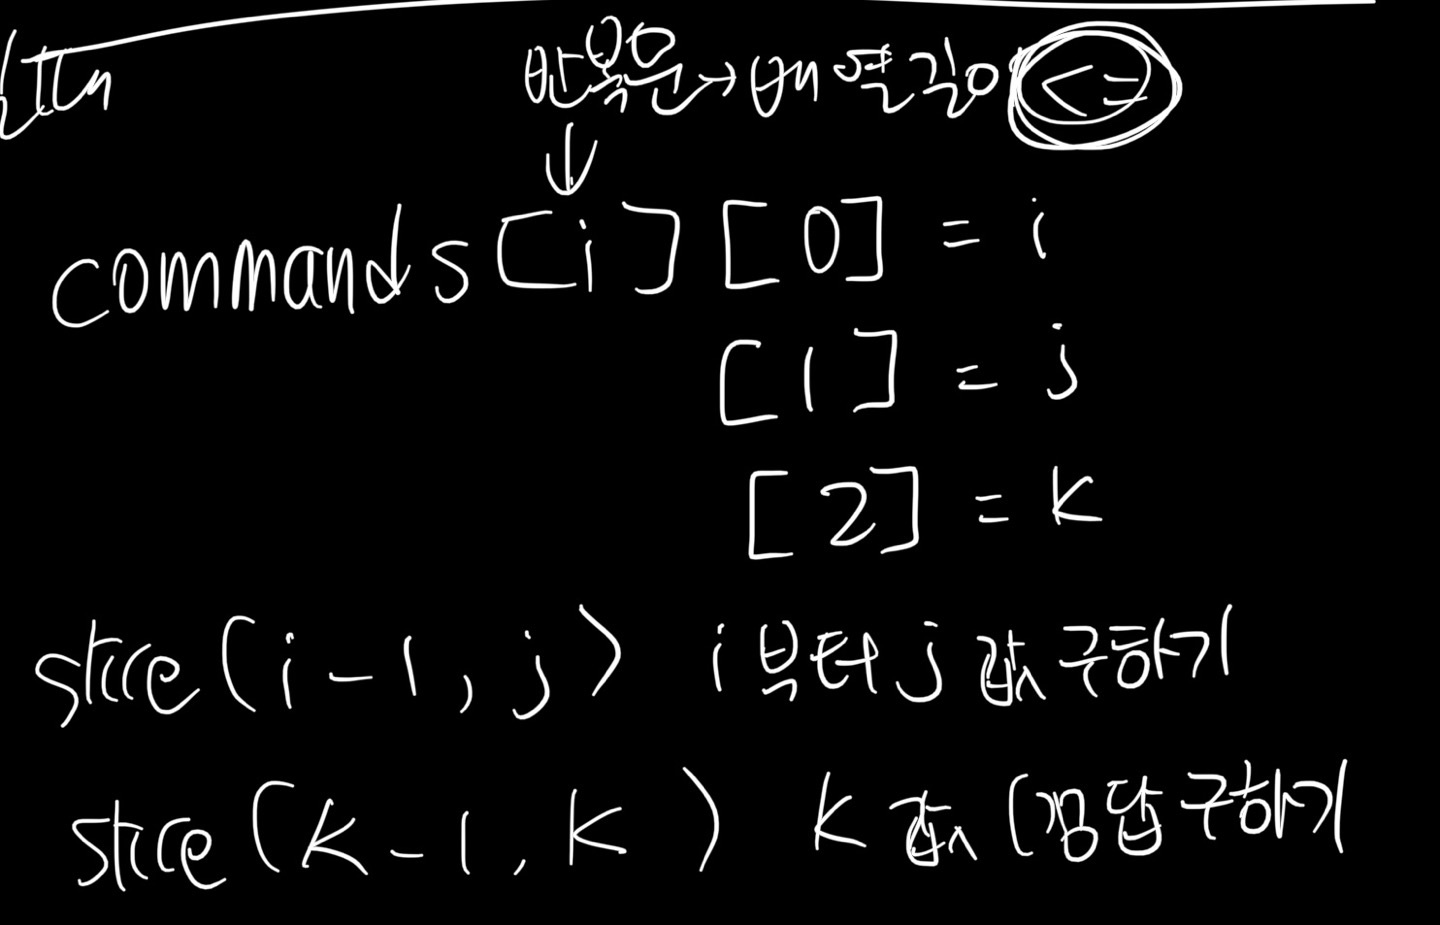 반복문 → 배열길이 <=
↓
commands[i][0] = i
[1] = j
[2] = k
slice(i-1, j) i부터 j 값 구하기
slice(k-1, k) k 값 (정답 구하기